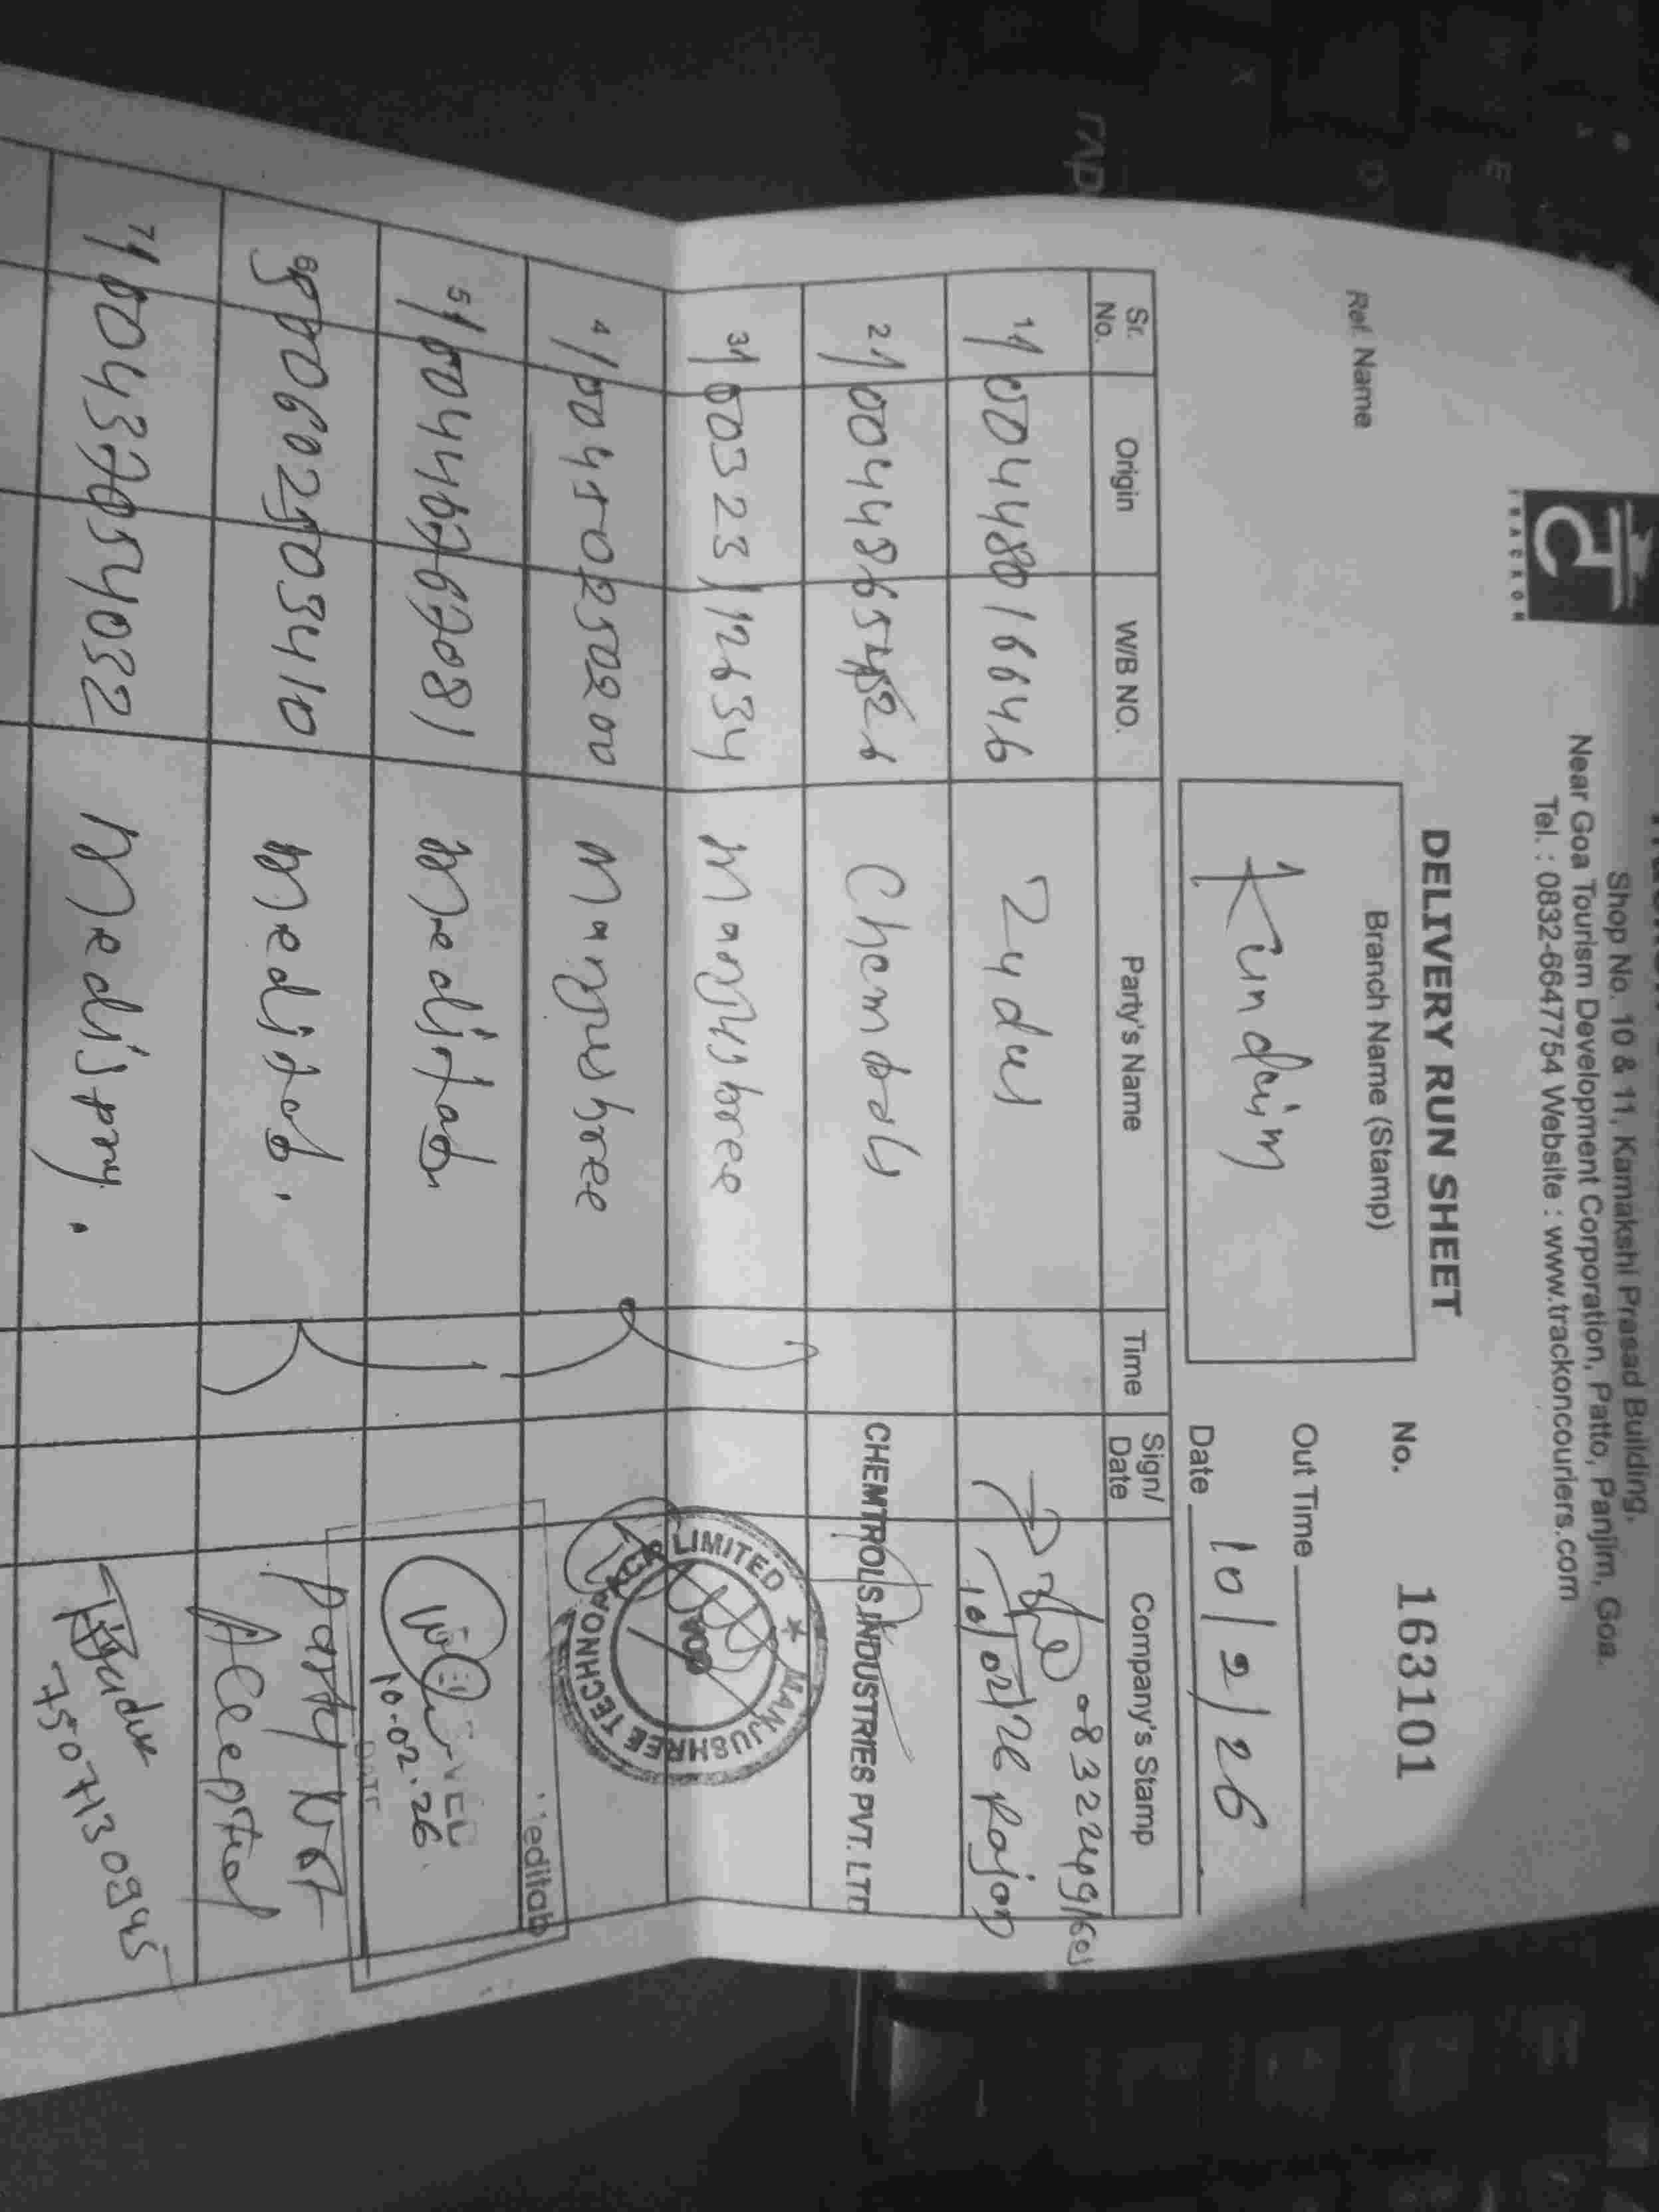 TRACKON
Shop No. 10 & 11, Kamakshi Prasad Building,
Near Goa Tourism Development Corporation, Patto, Panjim, Goa.
Tel. : 0832-6647754 Website : www.trackoncouriers.com
DELIVERY RUN SHEET
No. 163101
Ref. Name
Branch Name (Stamp)
Kundaim
Out Time
Date 10/2/26
Sr. No. Origin W/B NO. Party's Name Time Sign/ Date Company's Stamp
1 100448016646 Zydus 10/02/26 Rajan
2 Chemtrols CHEMTROLS INDUSTRIES PVT. LTD
3 100323112634 Manjushree
MANJUSHREE TECHNOPACK LIMITED
GOA
4 100450250200 Manjushree
5 Meditab 10.02.26
Meditab
DATE
6 500602503410 Meditab. Party Not Accepted
7 Medispray. 7507130945